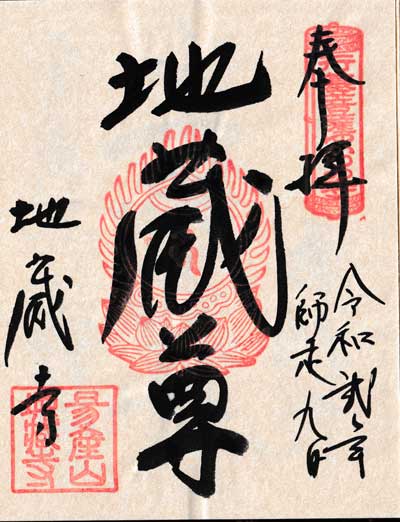 奉拝
令和弐年
師走九日
地蔵尊
地蔵寺